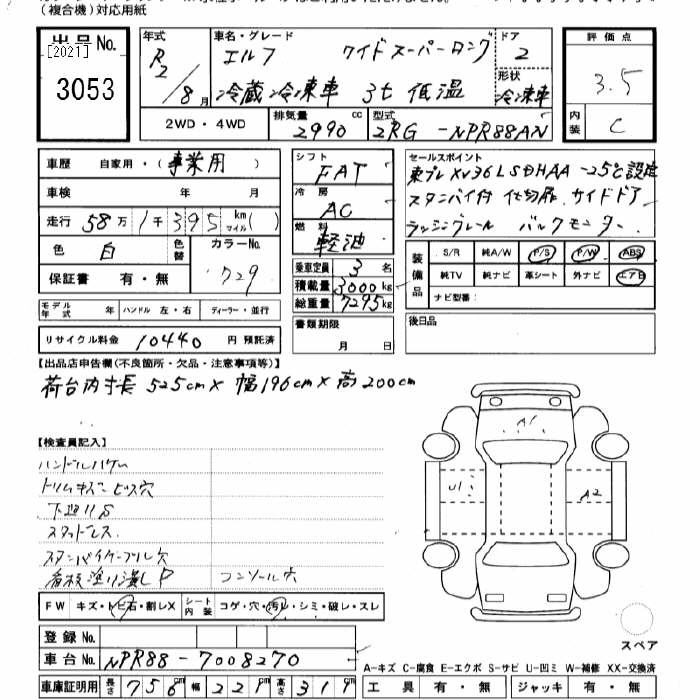 (複合機)対応用紙
出品No.
[2021]
3053
年式
R2/8月
車名・グレード
エルフ ワイドスーパーロング
冷蔵冷凍車 3t 低温
ドア
2
形状
冷凍車
評価点
3.5
内装
C
2WD・4WD
排気量
2990cc
型式
2RG-NPR88AN
車歴 自家用・(事業用)
車検 年 月
走行 58万1千395km マイル( )
色 白
色替
カラーNo.
729
保証書 有・無
シフト
FAT
冷房
AC
燃料
軽油
乗車定員 3名
積載量 3000kg
総重量 7295kg
書類期限
月 日
セールスポイント
東プレXV36LSDHAA-25℃設定
スタンバイ付 仕切扉 サイドドアー
ラッシングレール バックモニター
装備品
S/R 純A/W P/S P/W ABS
純TV 純ナビ 革シート 外ナビ エアB
ナビ型番:
モデル年式 年 ハンドル 左・右 ディーラー・並行
リサイクル料金 10440円 預託済
後日品
【出品店申告欄(不良箇所・欠品・注意事項等)】
荷台内寸長525cm×幅196cm×高200cm
【検査員記入】
ハンドルハゲ
トリムキズ ビス穴
下廻りS
スタッドレス
スタンバイケーブル穴
看板塗り潰しP コンソール穴
FW キズ・トビ石・割レX
シート内装 コゲ・穴・汚レ・シミ・破レ・スレ
登録No.
車台No. NPR88-7008270
車庫証明用 長さ756cm 幅221cm 高さ319cm
A1
U1
A2
スペア
A-キズ C-腐食 E-エクボ S-サビ U-凹ミ W-補修 XX-交換済
工具 有・無 ジャッキ 有・無